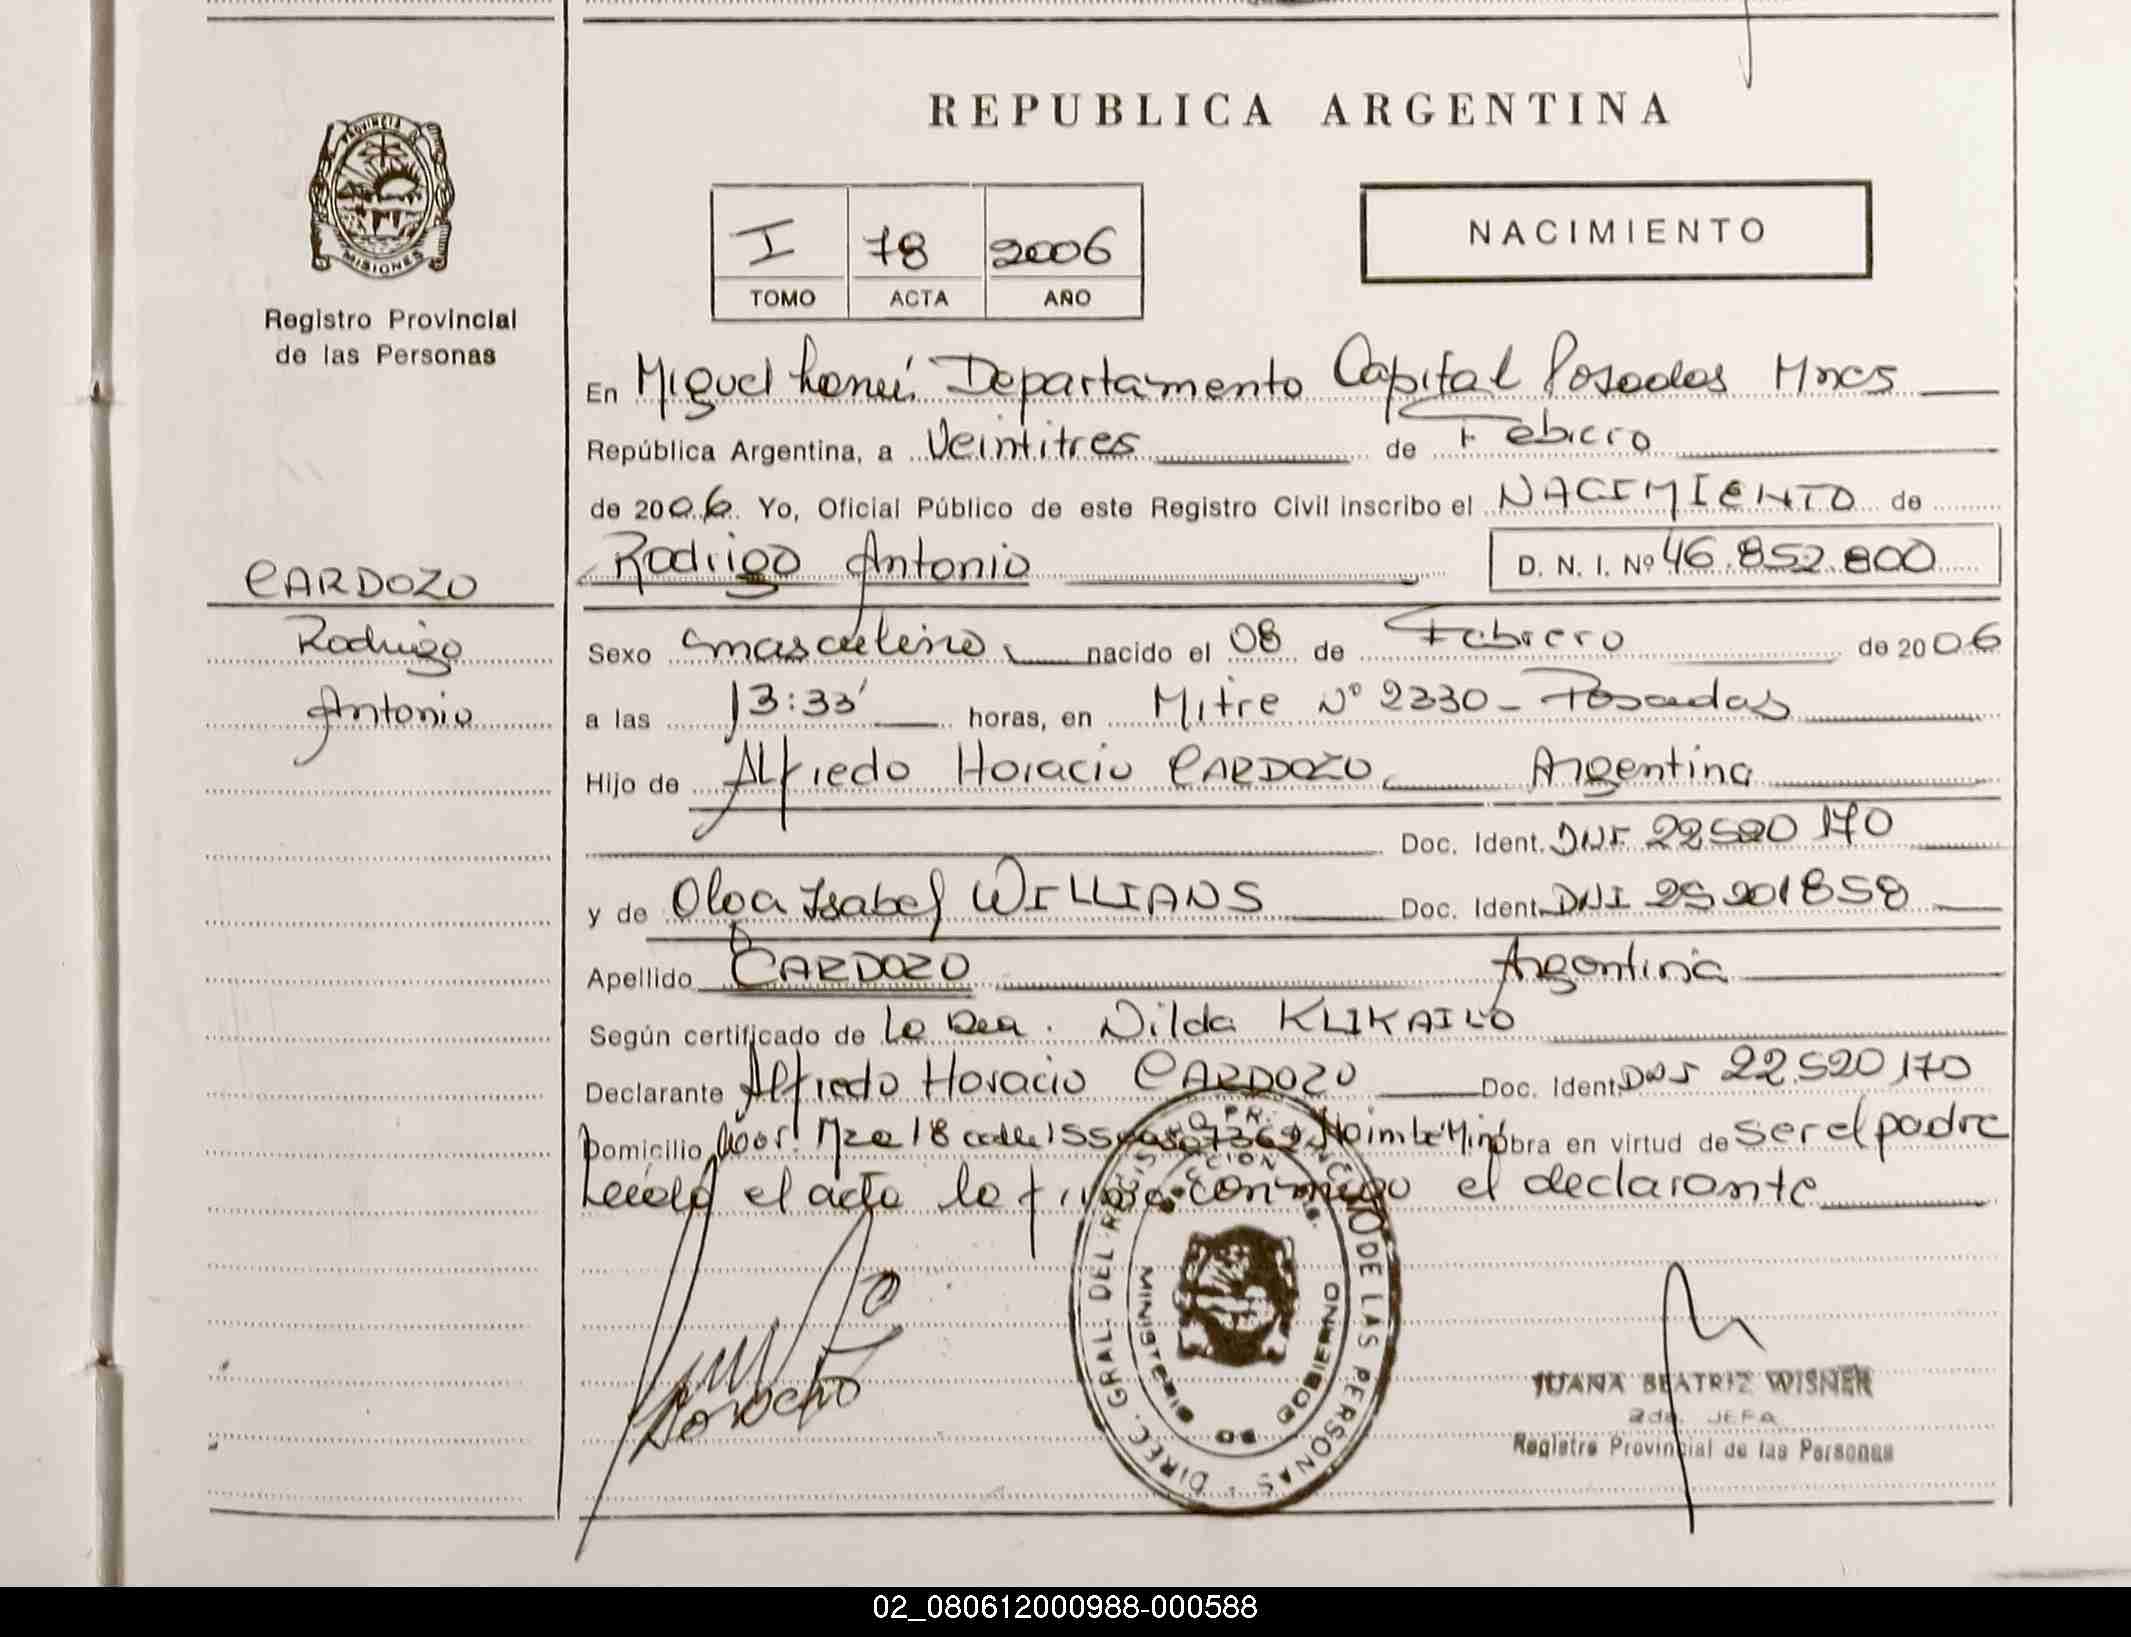 REPUBLICA ARGENTINA
PROVINCIA D
MISIONES
Registro Provincial
de las Personas
I 78 2006
TOMO ACTA AÑO
NACIMIENTO
En Miguel Lanús Departamento Capital Posadas Mnes
República Argentina, a Veintitres de Febrero
de 2006 Yo, Oficial Público de este Registro Civil inscribo el NACIMIENTO de
Rodrigo Antonio D. N. I. Nº 46.852.800
CARDOZO
Rodrigo
Antonio
Sexo masculino nacido el 08 de Febrero de 2006
a las 13:33' horas, en Mitre Nº 2330 - Posadas
Hijo de Alfredo Horacio CARDOZO Argentina
Doc. Ident. DNI 22520170
y de Olga Isabel WILLIANS Doc. Ident. DNI 25201858
Apellido CARDOZO Argentina
Según certificado de La Dra. Nilda KLIKAILO
Declarante Alfredo Horacio CARDOZO Doc. Ident. DNI 22.520.170
Domicilio Mza 18 calle 155 obra en virtud de ser el padre
Leída el acta la firma conmigo el declarante
DIREC. GRAL. DEL REGISTRO PROVINCIAL DE LAS PERSONAS
MINISTERIO DE GOBIERNO
JUANA BEATRIZ WISNER
2da. JEFA
Registro Provincial de las Personas
02_080612000988-000588